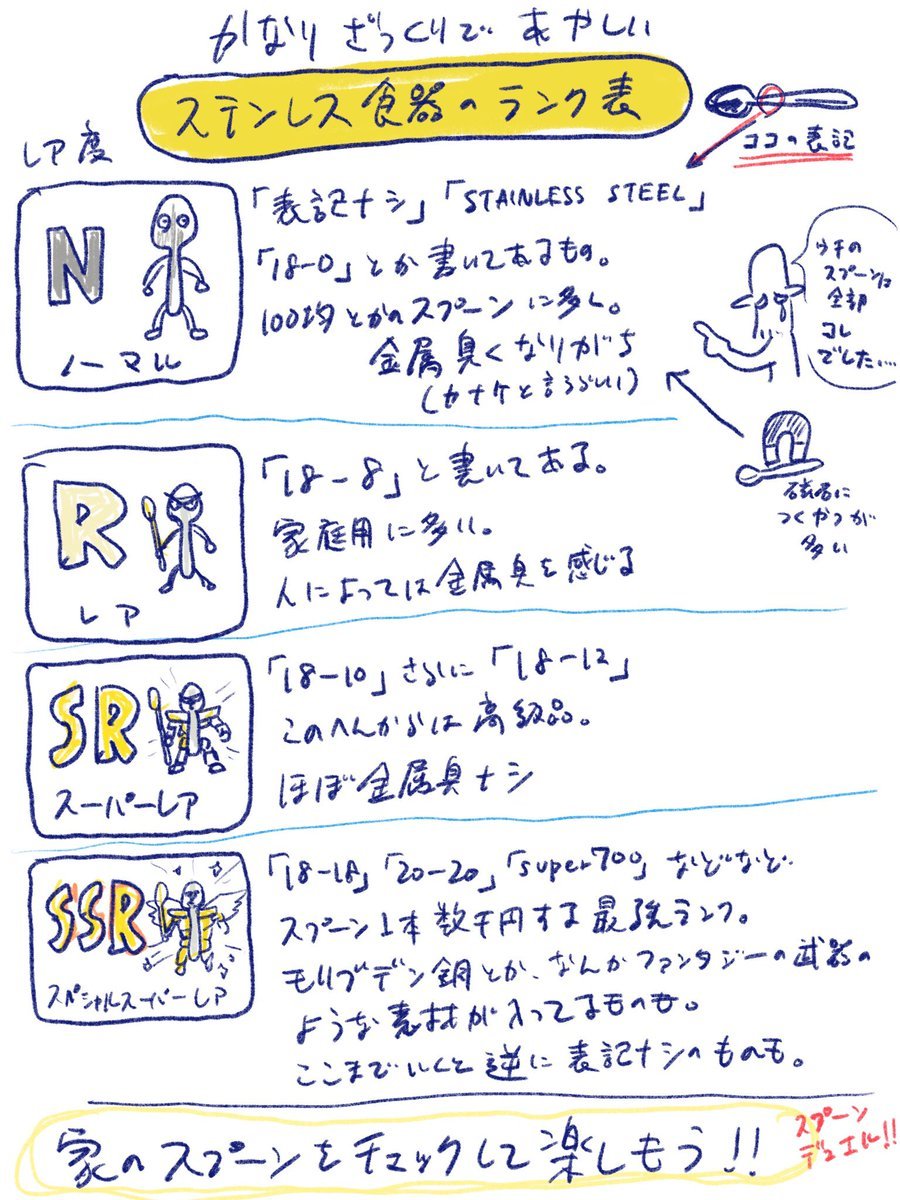 かなりざっくりで あやしい
ステンレス食器のランク表
ココの表記
レア度
N
ノーマル
「表記ナシ」「STAINLESS STEEL」
「18-0」とか書いてあるもの。
100均とかのスプーンに多く。
金属臭くなりがち
(カナケと言うらしい)
ウチの
スプーンは
全部
コレ
でした…
磁石に
つくやつが
多い
R
レア
「18-8」と書いてある。
家庭用に多い。
人によっては金属臭を感じる
SR
スーパーレア
「18-10」さらに「18-12」
このへんからは高級品。
ほぼ金属臭ナシ
SSR
スペシャルスーパーレア
「18-18」「20-20」「super700」などなど
スプーン1本数千円する最強ランク。
モリブデン鋼とか、なんかファンタジーの武器の
ような素材が入ってるものも。
ここまでいくと逆に表記ナシのものも。
家のスプーンをチェックして楽しもう!!
スプーン
デュエル!!